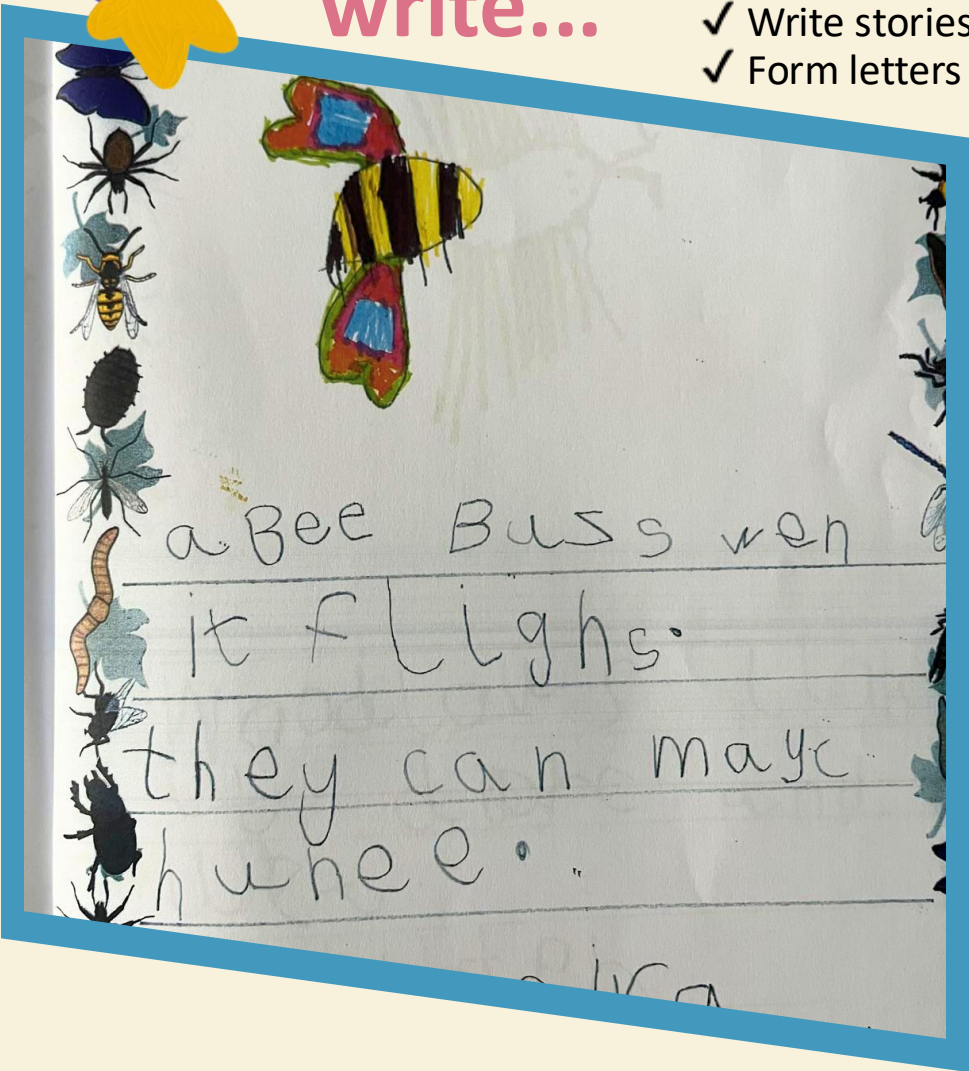 write...
✓ Write stories
✓ Form letters
a Bee Buss wen
it flighs.
they can mayc
hunee.